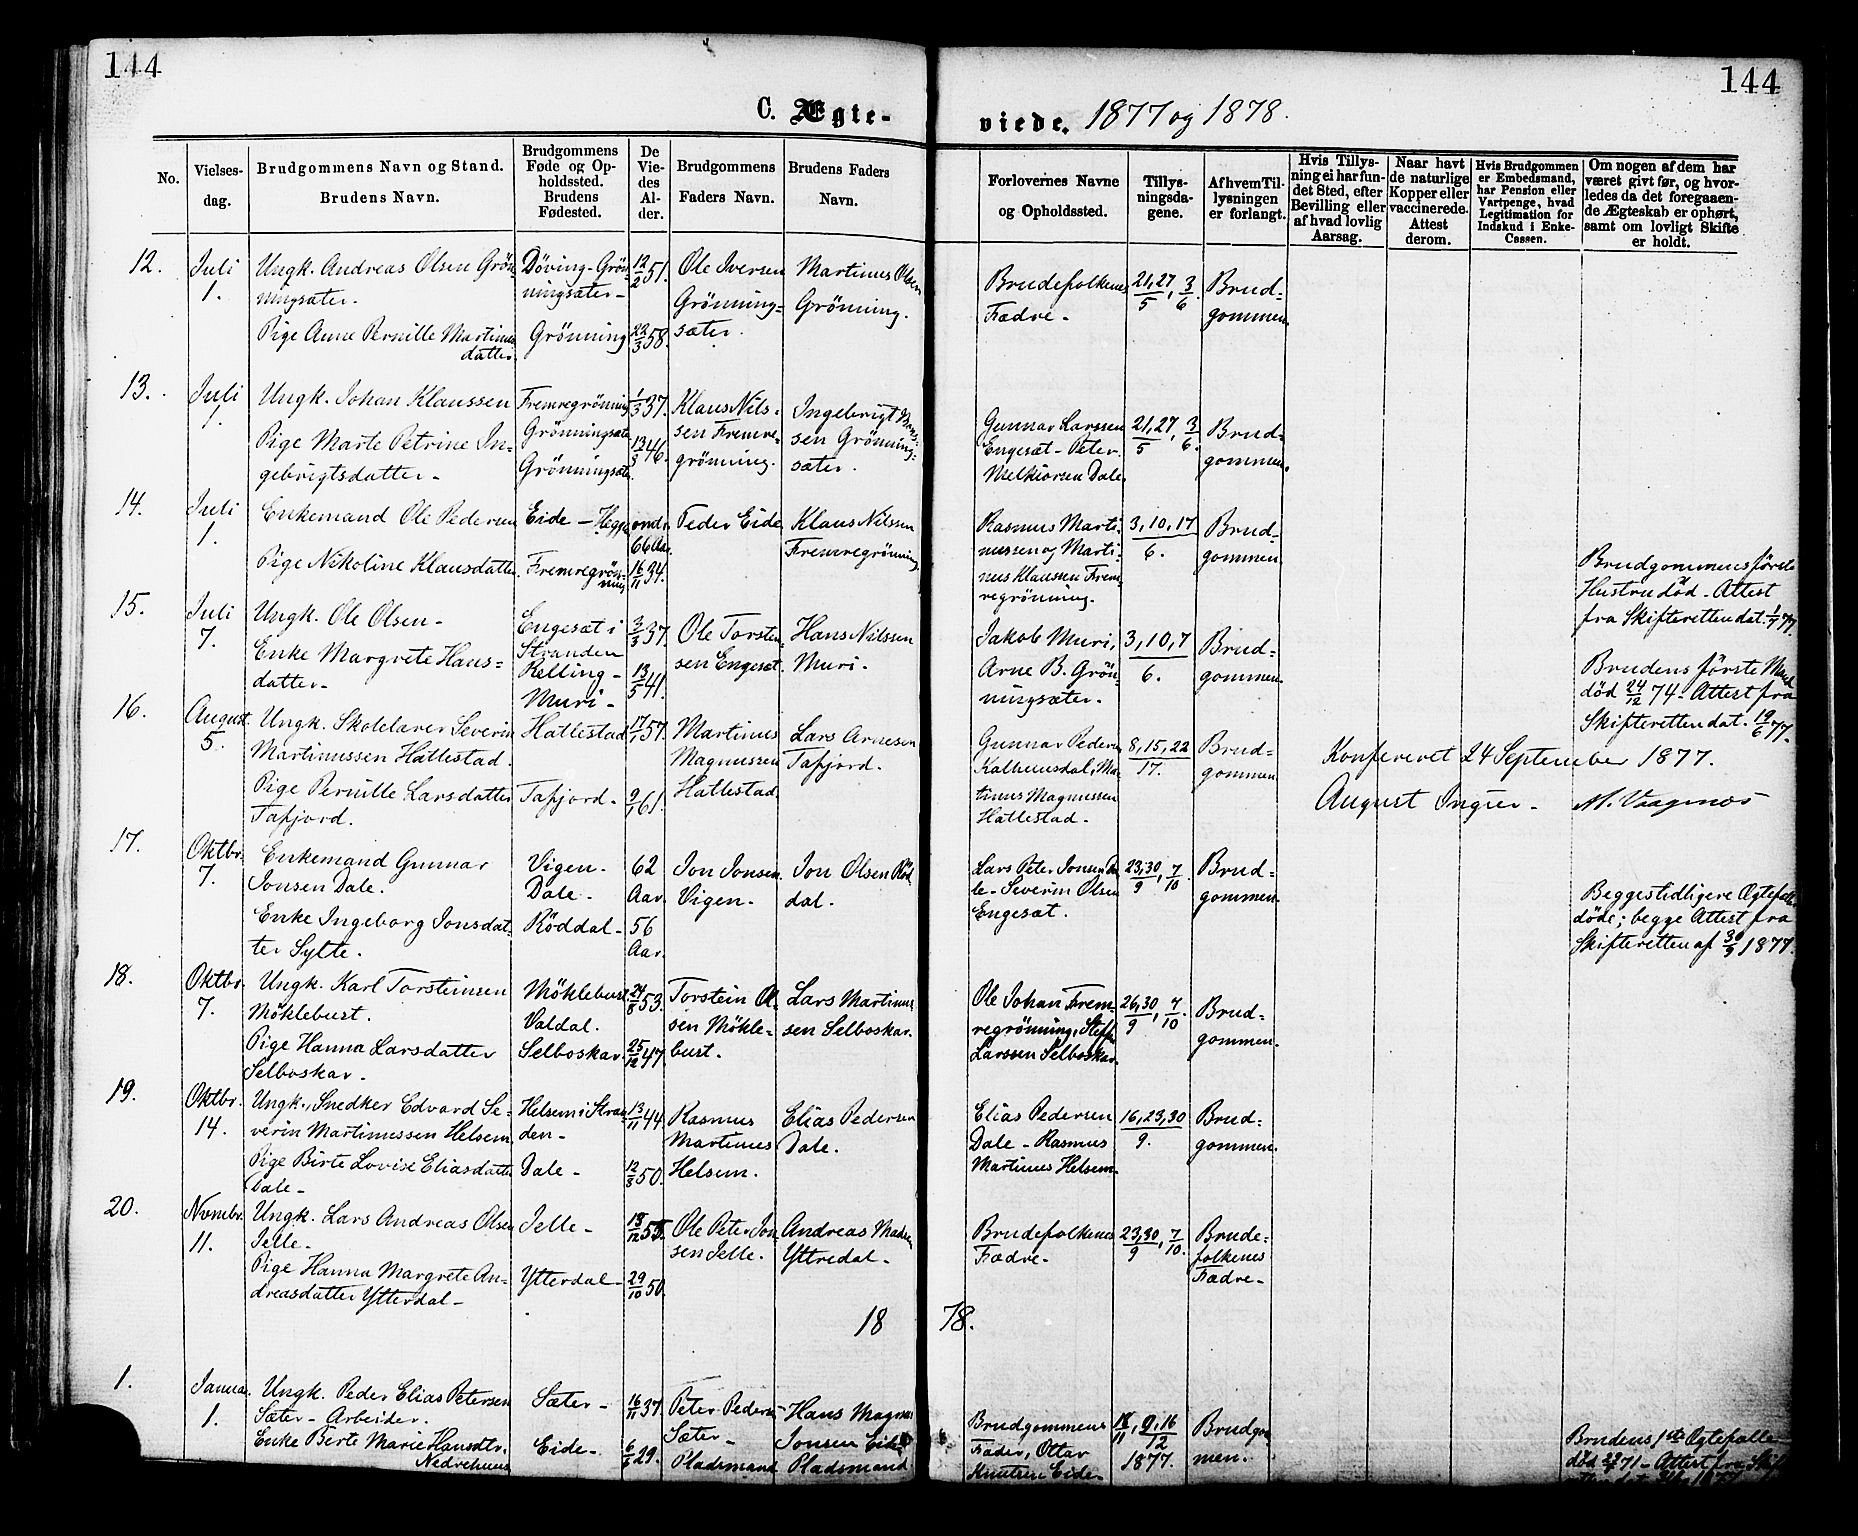 144
144
C. Ægte-
viede. 1877 og 1878.
No.
Vielses-
dag.
Brudgommens Navn og Stand.
Brudens Navn.
Brudgommens
Føde og Op-
holdssted.
Brudens
Fødested.
De
Vie-
des
Al-
der.
Brudgommens
Faders Navn.
Brudens Faders
Navn.
Forlovernes Navne
og Opholdssted.
Tillys-
ningsda-
gene.
Af hvem Til-
lysningen
er forlangt.
Hvis Tillys-
ning ei har fun-
det Sted, efter
Bevilling eller
af hvad lovlig
Aarsag.
Naar havt
de naturlige
Kopper eller
vaccinerede.
Attest
derom.
Hvis Brudgommen
er Embedsmand,
har Pension eller
Vartpenge, hvad
Legitimation for
Indskud i Enke-
Cassen.
Om nogen af dem har
været givt før, og hvor-
ledes da det foregaaen-
de Ægteskab er ophørt,
samt om lovligt Skifte
er holdt.
12.
Juli
1.
Ungk. Andreas Olsen Grön-
ningsæter.
Pige Anne Pernille Martinus
datter.
Döving - Grön-
ningsæter -
Grönning
12/2 51.
22/3 58.
Ole Iversen
Grönning-
sæter.
Martinus Olsen
Grönning.
Brudefolkenes
Fædre -
21,27/5, 3/6
Brud-
gommen.
13.
Juli
1.
Ungk. Johan Klaussen
Pige Marte Petrine In-
gebrigtsdatter -
Fremregrönning
Grönningsæte
Grönningsæte
1/3 37.
13/3 46.
Klaus Nils-
sen Fremre-
grönning.
Ingebrigt
sen Grönning-
sæter.
Gunnar Larssen
Engesæt - Peter
Melkiorsen Dale.
21,27/5, 3/6.
Brud-
gommen.
14.
Juli
1.
Enkemand Ole Pedersen
Pige Nikoline Klausdatter.
Eide -
Fremregrön-
ning
omtr.
66 Aar.
16/11 34.
Peder Eide
Klaus Nilssen
Fremregrönning
Rasmus Marti-
nussen og Marti-
nus Klaussen Frem-
regrönning.
3,10,17
6.
Brud-
gommen
Brudgommens förste
Hustru död - Attest
fra Skifteretten dat. 1/7 77.
15.
Juli
7.
Ungk. Ole Olsen -
Enke Margrete Hans-
datter -
Engesæt i
Stranden
Relling -
Muri -
3/3 37.
13/5 41.
Ole Torsten-
sen Engesæt.
Hans Nilssen
Muri.
Jakob Muri,
Arne B. Grön-
ningsæter.
3,10,7
6.
Brud-
gommen.
Brudens förste Mand
död 24/12 74 - Attest fra
Skifteretten dat. 19/6 77.
16.
August
5.
Ungk. Skolelærer Severin
Martinussen Hattestad.
Pige Pernille Larsdatter
Tafjord.
Hattestad
Tafjord -
17/1 57.
9/1 61.
Martinus
Magnussen
Hattestad
Lars Arnesen
Tafjord.
Gunnar Pedersen
Kalhusdal, Ma-
tinus Magnussen
Hattestad -
8,15,22
17.
Brud-
gommen
Konfereret 24 September 1877.
August M. Vaagenæs
17.
Oktbr.
7.
Enkemand Gunnar
Jonsen Dale.
Enke Ingeborg Jonsdat-
ter Sylte.
Vigen -
Dale -
Röddal -
62
Aar.
56
Aar.
Jon Jonsen
Vigen -
Jon Olsen Röd
dal.
Lars Peter Jonsen Da
le - Severin Olsen
Engesæt.
23,30/9, 7/10.
Brud-
gommen.
Begges tidligere Ægtefæller
döde; begge Attest fra
Skifteretten af 30/9 1877.
18.
Oktbr.
7.
Ungk. Karl Torsteinsen
Möklebust.
Pige Hanna Larsdatter
Selboskar -
Möklebust
Valdal.
Selboskar
24/8 53.
25/12 47.
Torstein Ol-
sen Mökle-
bust.
Lars Martinus
sen Selboskar.
Ole Johan Frem-
regrönning, Steffen
Larssen Selboskar
26,30/9, 7/10.
Brud-
gommen.
19.
Oktbr.
14.
Ungk., Snedker Edvard Se-
verin Martinussen Helsem.
Pige Birte Lovise Eliasdatter
Dale -
Helsem i Stran-
den -
Dale -
13/11 44
12/3 50.
Rasmus
Martinus
Helsem.
Elias Pedersen
Dale.
Elias Pedersen
Dale - Rasmus
Martinus Helsem -
16,23,30
9.
Brud-
gommen.
20.
Novmbr.
11.
Ungk. Lars Andreas Olsen
Jelle -
Pige Hanna Margrete An-
dreasdatter Ytterdal -
Jelle -
Ytterdal -
18/12 55.
29/10 50.
Ole Peter Jon
sen Jelle.
Andreas
Yttredal -
Brudefolkenes
Fædre -
23,30/9, 7/10.
Brude-
folkenes
Fædre -
18 78.
1.
Januar.
1.
Ungk. Peder Elias Petersen
Sæter - Arbeider.
Enke Berte Marie Hansdtr.
Nedrehuus
Sæter -
Eide -
16/11 37.
6/5 29.
Peter Peders
Sæter -
Pladsmand
Hans Magnus
Jonsen Eide
Pladsmand
Brudgommens
Fader, Ottar
Knutsen Eide -
18/11, 9,16/12
1877.
Brudgom-
men.
Brudens 1ste Ægtefælle
död 71 - Attest fra Skif